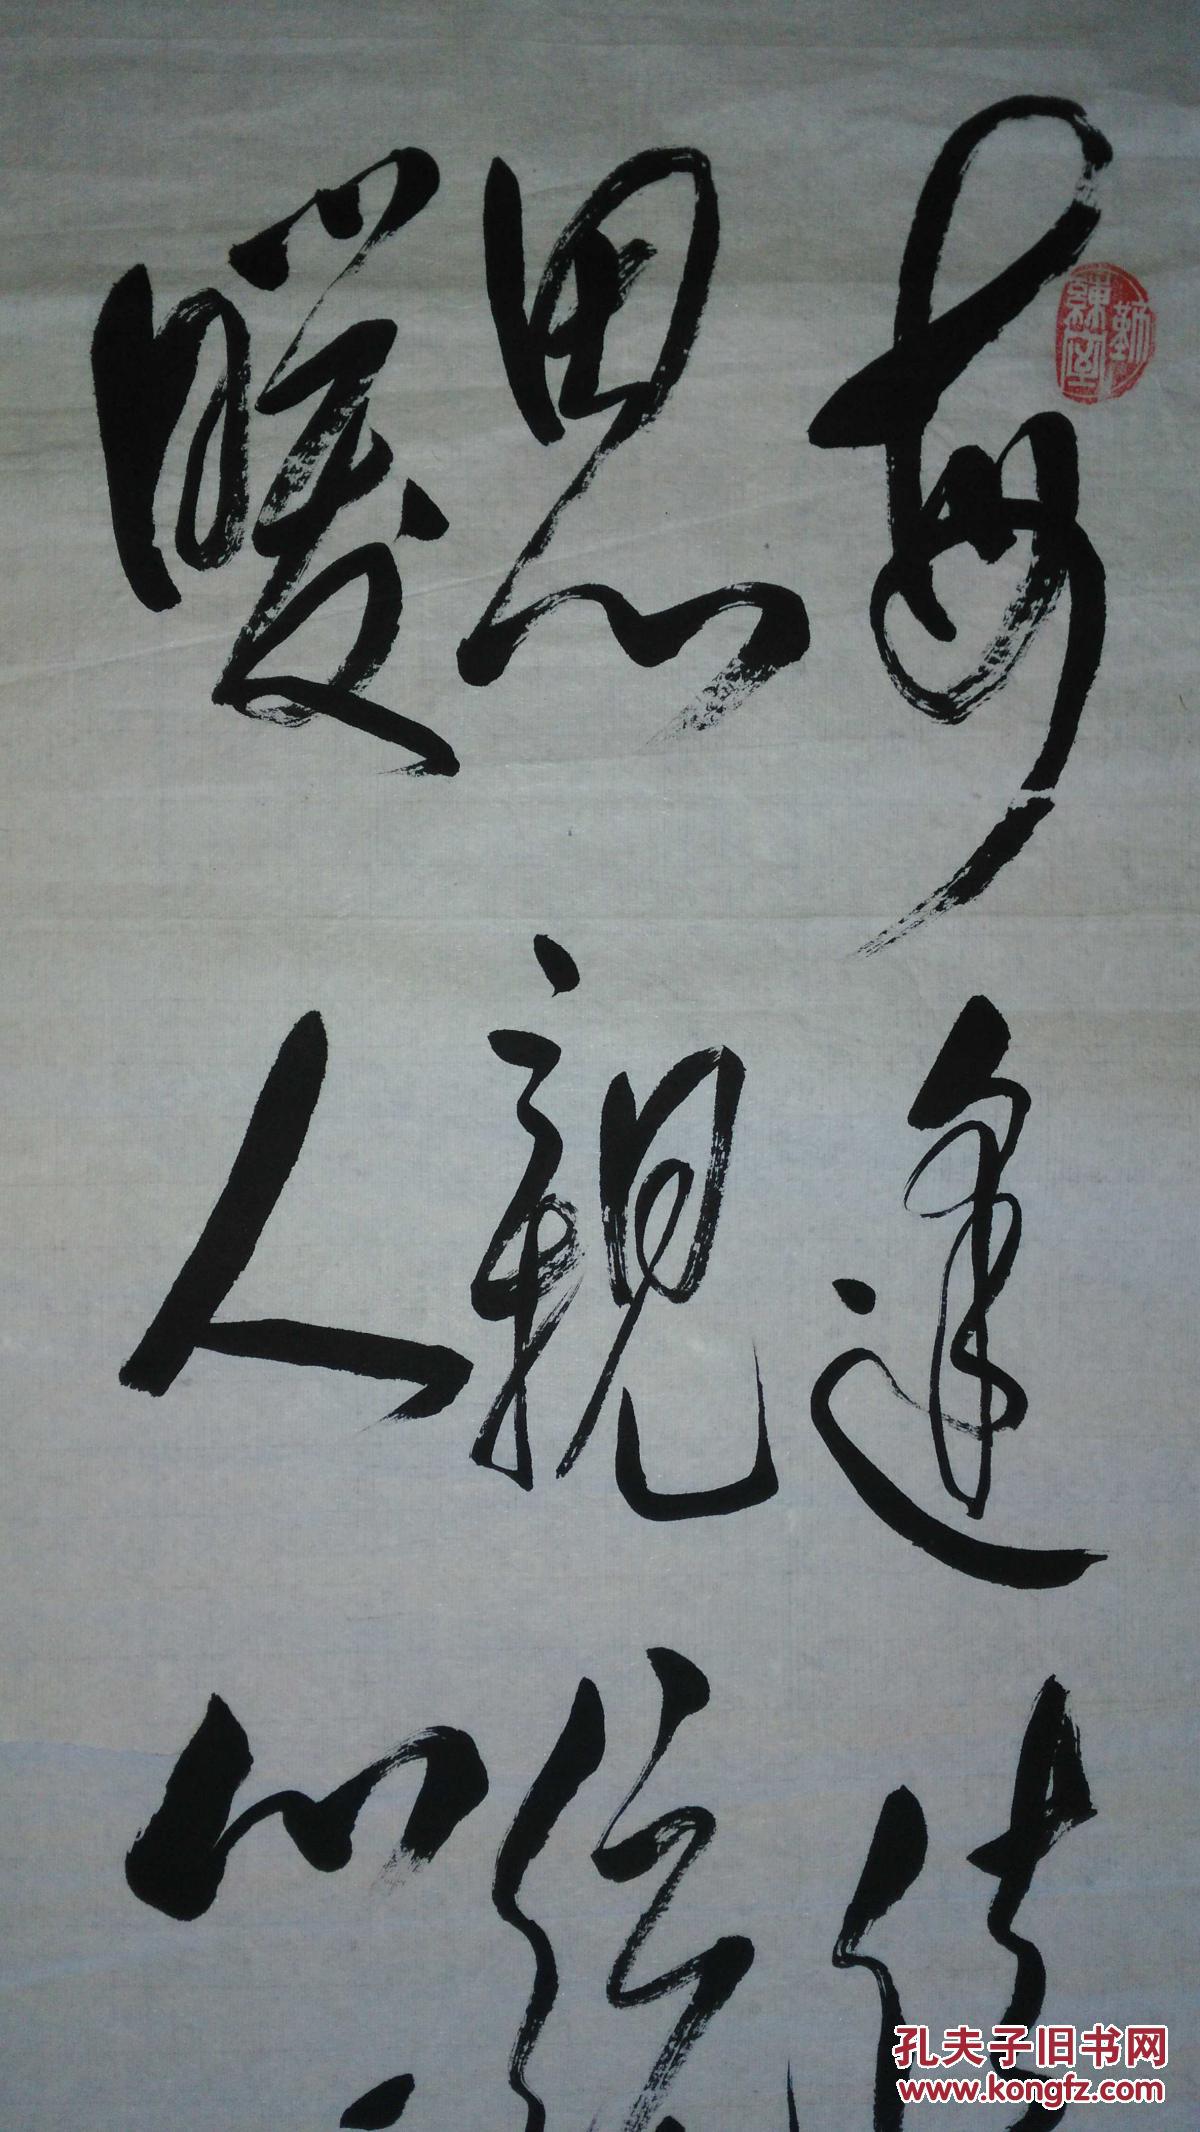 每逢佳
思親
暖人心
勤練堂
孔夫子旧书网
www.kongfz.com